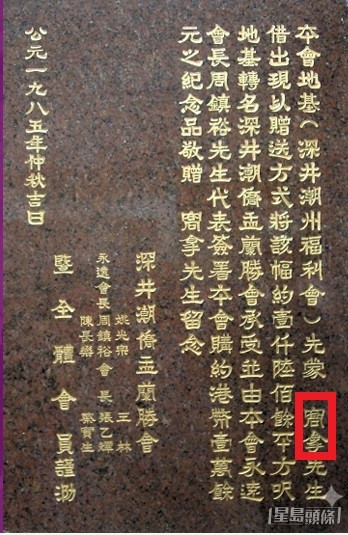 本會地基（深井潮州福利會）先蒙 拿先生
借出現以贈送方式將該幅約壹仟陸佰餘平方呎
地基轉名深井潮僑盂蘭勝會承受並由本會永遠
會長周鎮裕先生代表簽署本會購約港幣壹萬餘
元之紀念品敬贈 拿先生留念
深井潮僑盂蘭勝會
姚光宗 王林
永遠會長周鎮裕 會長張乙輝
陳長樂 蔡寶生
暨全體會員謹泐
公元一九八五年仲秋吉日
星島頭條